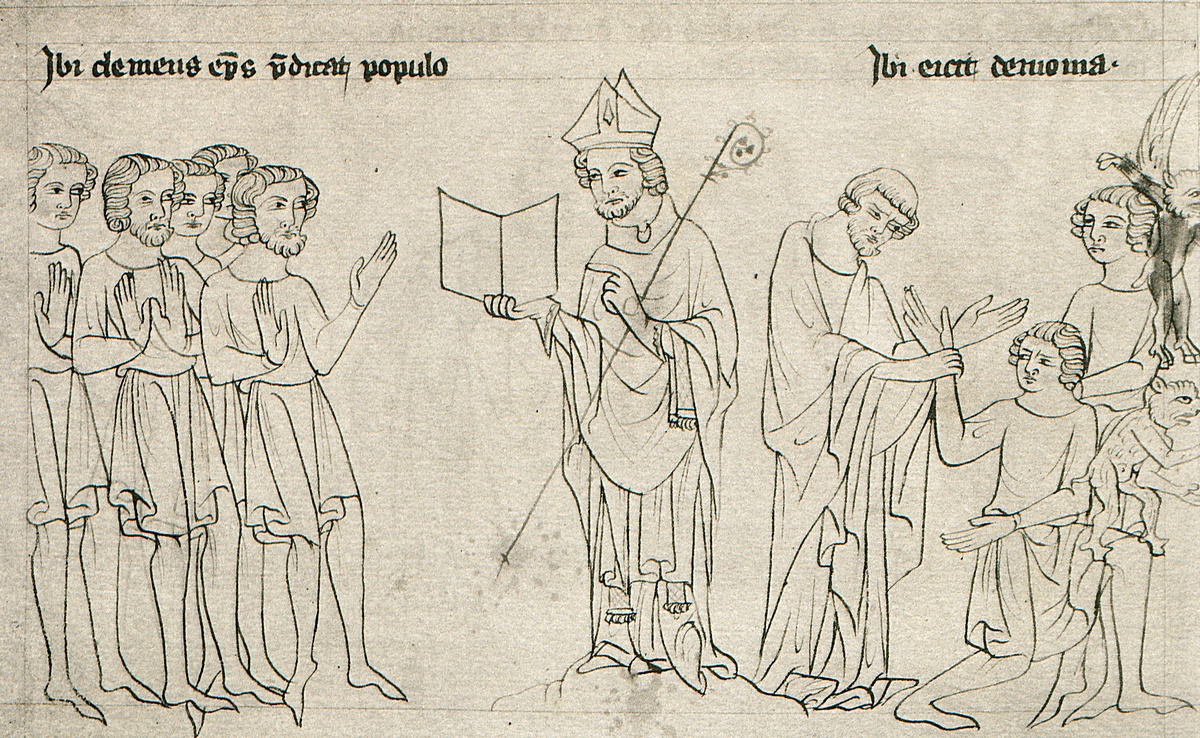 Ibi clemens ep̄s p̄dicat populo
Ibi eicit demonia·